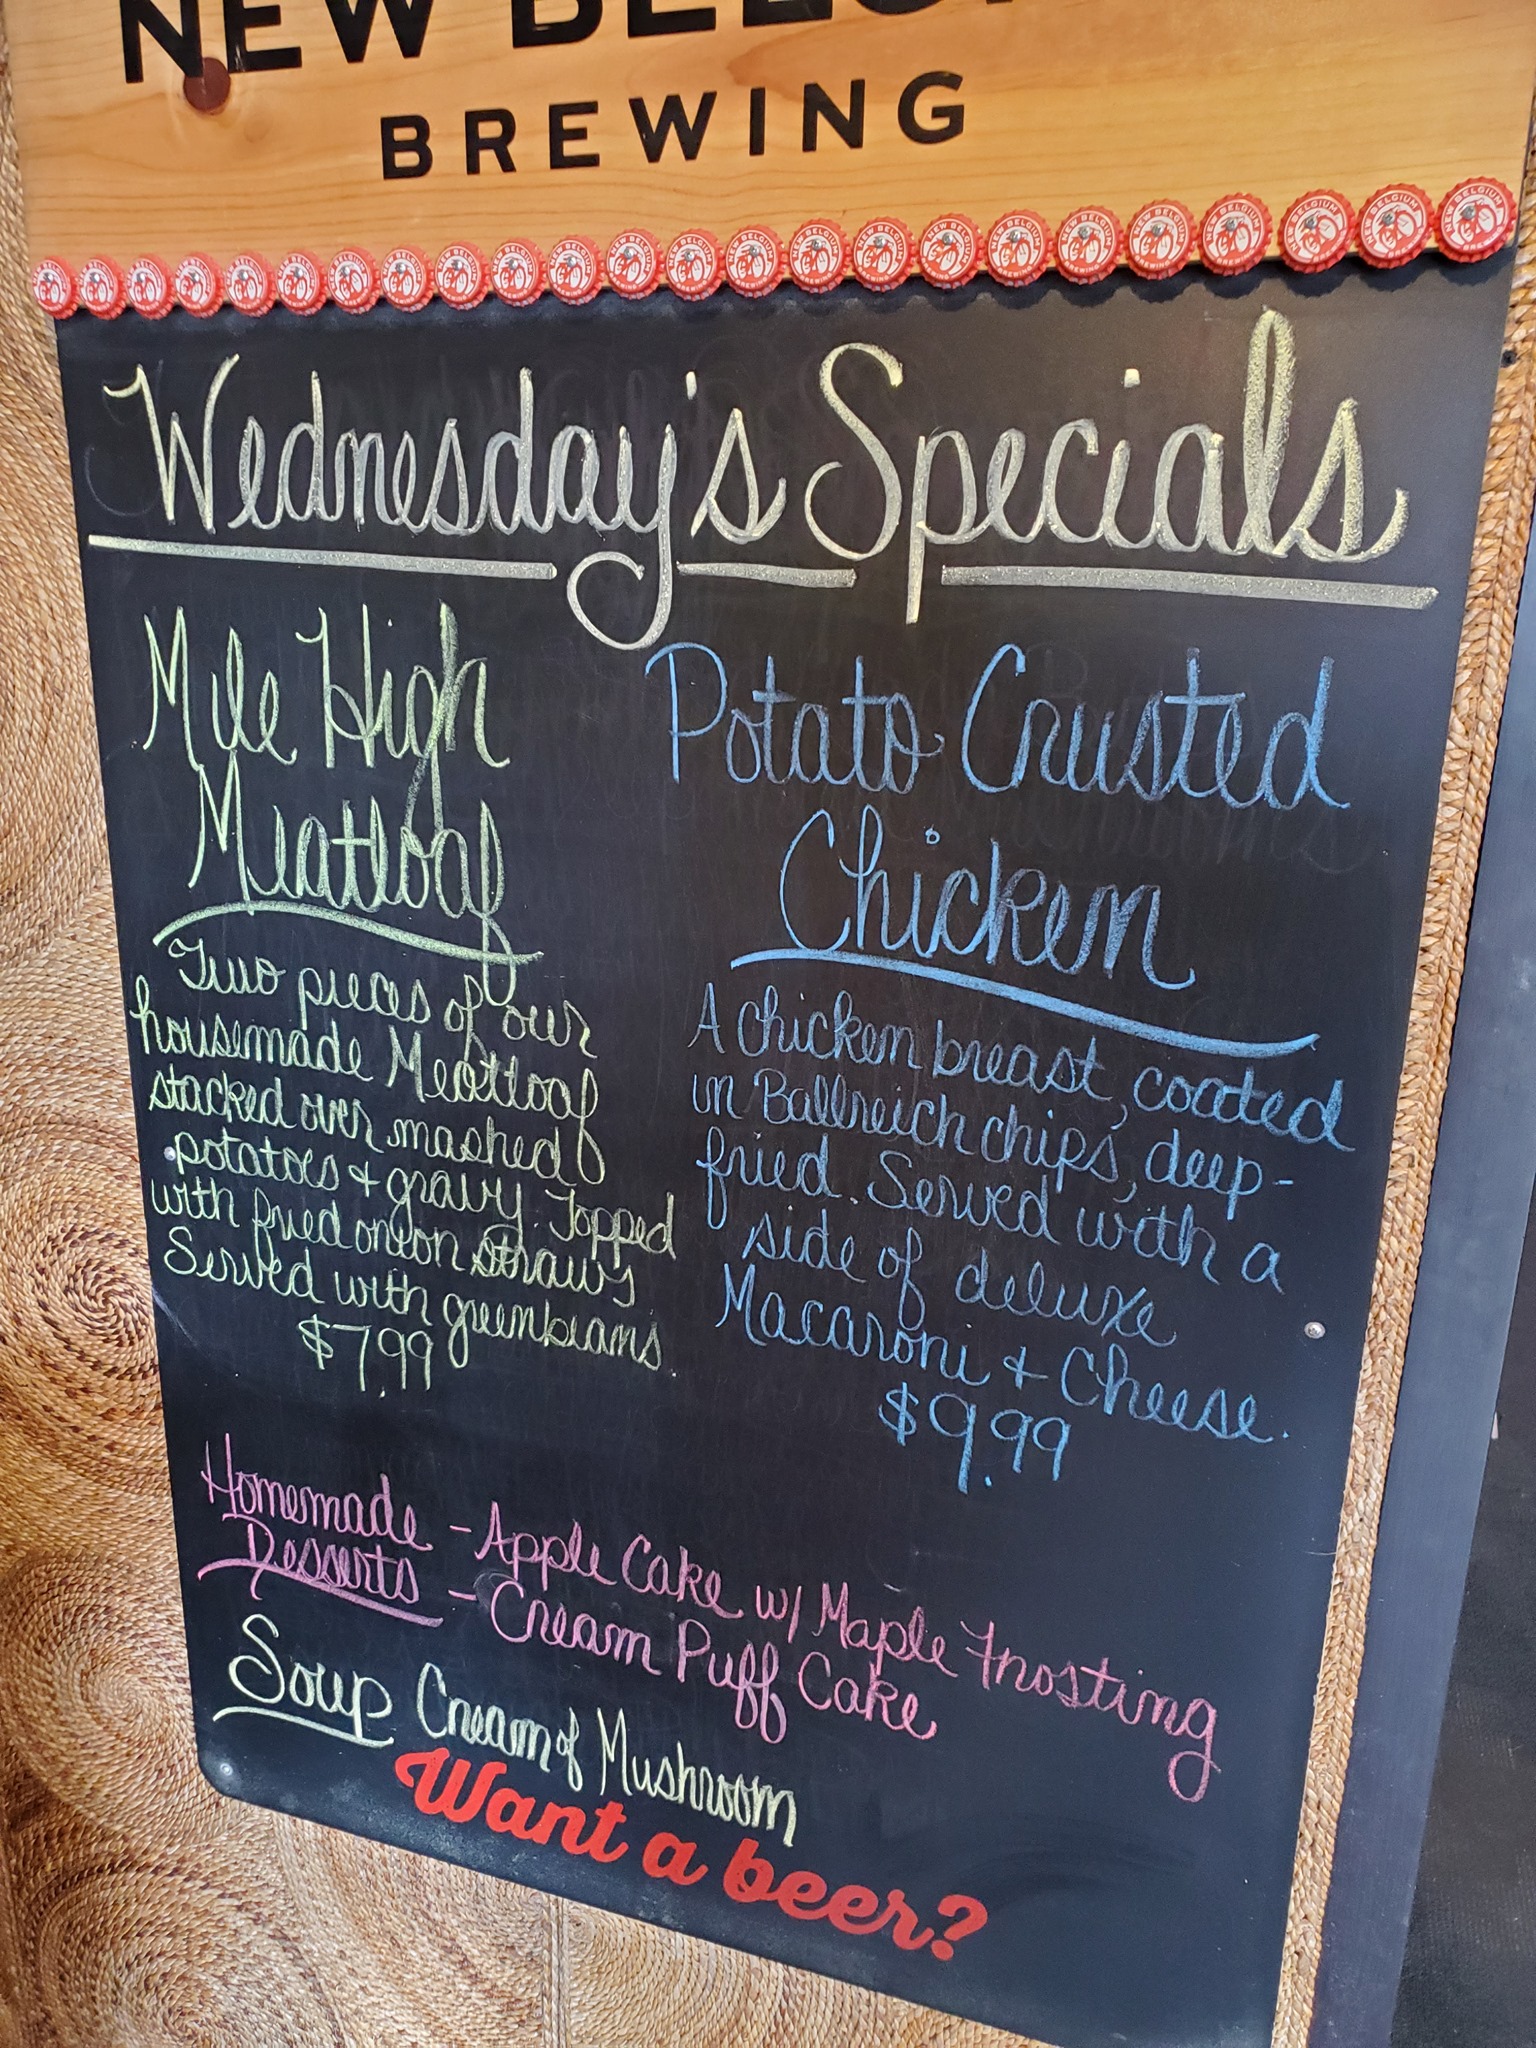 NEW BELGI
BREWING
Wednesday's Specials
Mile High
Meatloaf
Two pieces of our
housemade Meatloaf
stacked over mashed
potatoes + gravy. Topped
with fried onion straws
Served with greenbeans.
$7.99
Potato Crusted
Chicken
A chicken breast, coated
in Ballreich chips, deep-
fried. Served with a
side of deluxe
Macaroni + Cheese.
$9.99
Homemade - Apple Cake w/ Maple Frosting
Desserts - Cream Puff Cake
Soup Cream of Mushroom
Want a beer?